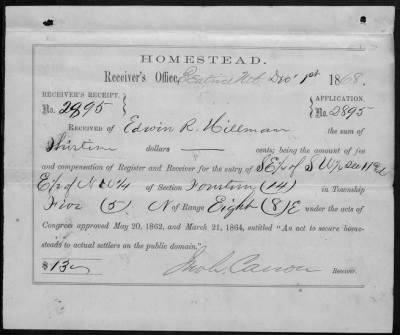 HOMESTEAD.
Receiver's Office, Beatrice Neb. Dec 1st 1868.
RECEIVER'S RECEIPT. APPLICATION.
No. 2895 No. 2895
RECEIVED OF Edwin R. Hillman the sum
of Thirteen dollars —— cents; being the amount of fee
and compensation of Register and Receiver for the entry of S E/4 of S W/4 Sec 11 &
E/2 of N W/4 of Section Fourteen (14) in Township
Five (5) N of Range Eight (8) E under the acts of
Congress approved May 20, 1862, and March 21, 1864, entitled "An act to secure home-
steads to actual settlers on the public domain."
$13 Jno L. Carson Receiver.